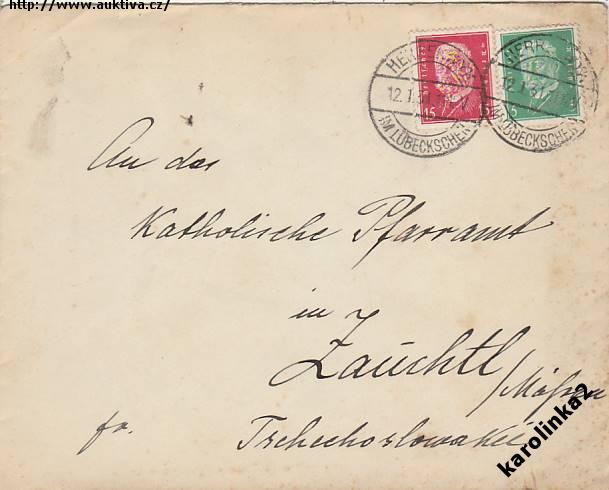 http://www.auktiva.cz/
HERRE
12.1.31.
IM LÜBECKSCHEN
15
15
HERR
12.1.31.
LÜBECKSCHEN
5
An das
Katholische Pfarramt
in
Zauchtl
/Mähren
fr. Tschechoslowakei
karolinka2